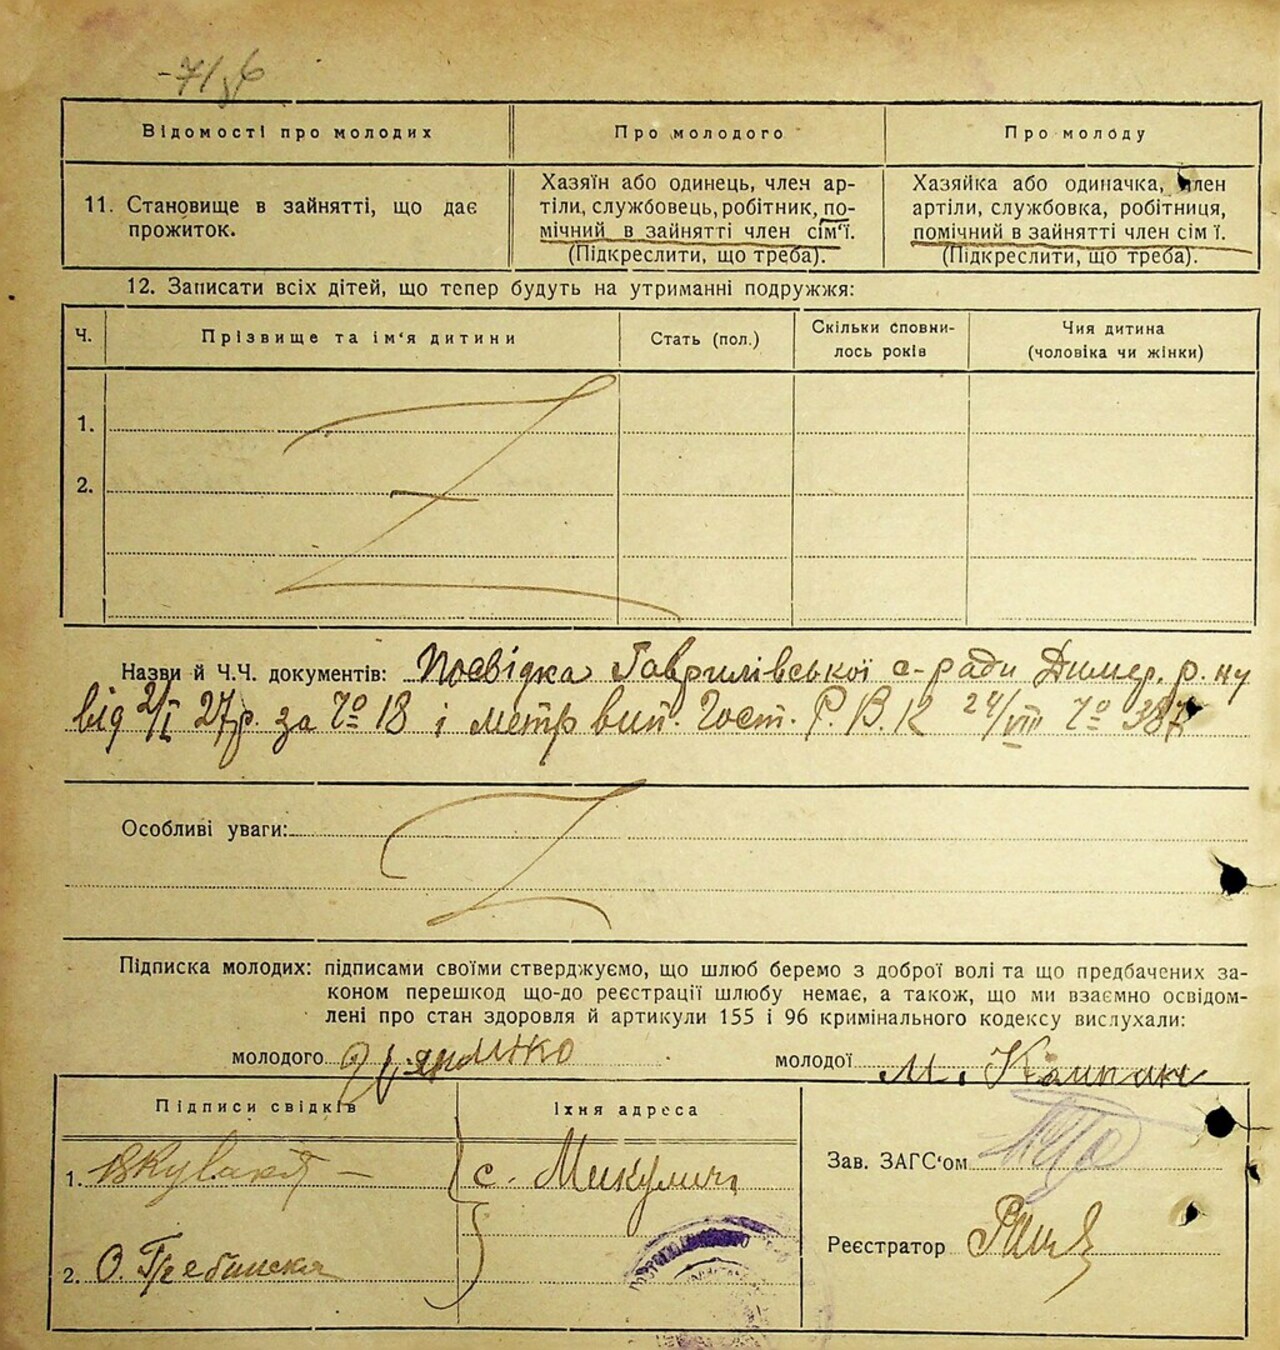 Відомості про молодих
Про молодого
Про молоду
11. Становище в зайнятті, що дає
прожиток.
Хазяїн або одинець, член ар-
тіли, службовець, робітник, по-
мічний в зайнятті член сім'ї.
(Підкреслити, що треба).
Хазяйка або одиначка, член
артіли, службовка, робітниця,
помічний в зайнятті член сім ї.
(Підкреслити, що треба).
12. Записати всіх дітей, що тепер будуть на утриманні подружжя:
Ч.
Прізвище та ім'я дитини
Стать (пол.)
Скільки сповни-
лось років
Чия дитина
(чоловіка чи жінки)
1.
2.
Назви й Ч.Ч. документів: Посвідка Гаврилівської с-ради Димер. р. ну
від 2/I 27р. за № 18 і метр вип. Гост. Р. В. К 24/VIII № 387
Особливі уваги:
Підписка молодих: підписами своїми стверджуємо, що шлюб беремо з доброї волі та що предбачених за-
коном перешкод що-до реєстрації шлюбу немає, а також, що ми взаємно освідом-
лені про стан здоровля й артикули 155 і 96 кримінального кодексу вислухали:
молодого
молодої М.
Підписи свідків
Їхня адреса
1.
с. Микуличі
2. О. Гребинска
Зав. ЗАГС'ом
Реєстратор